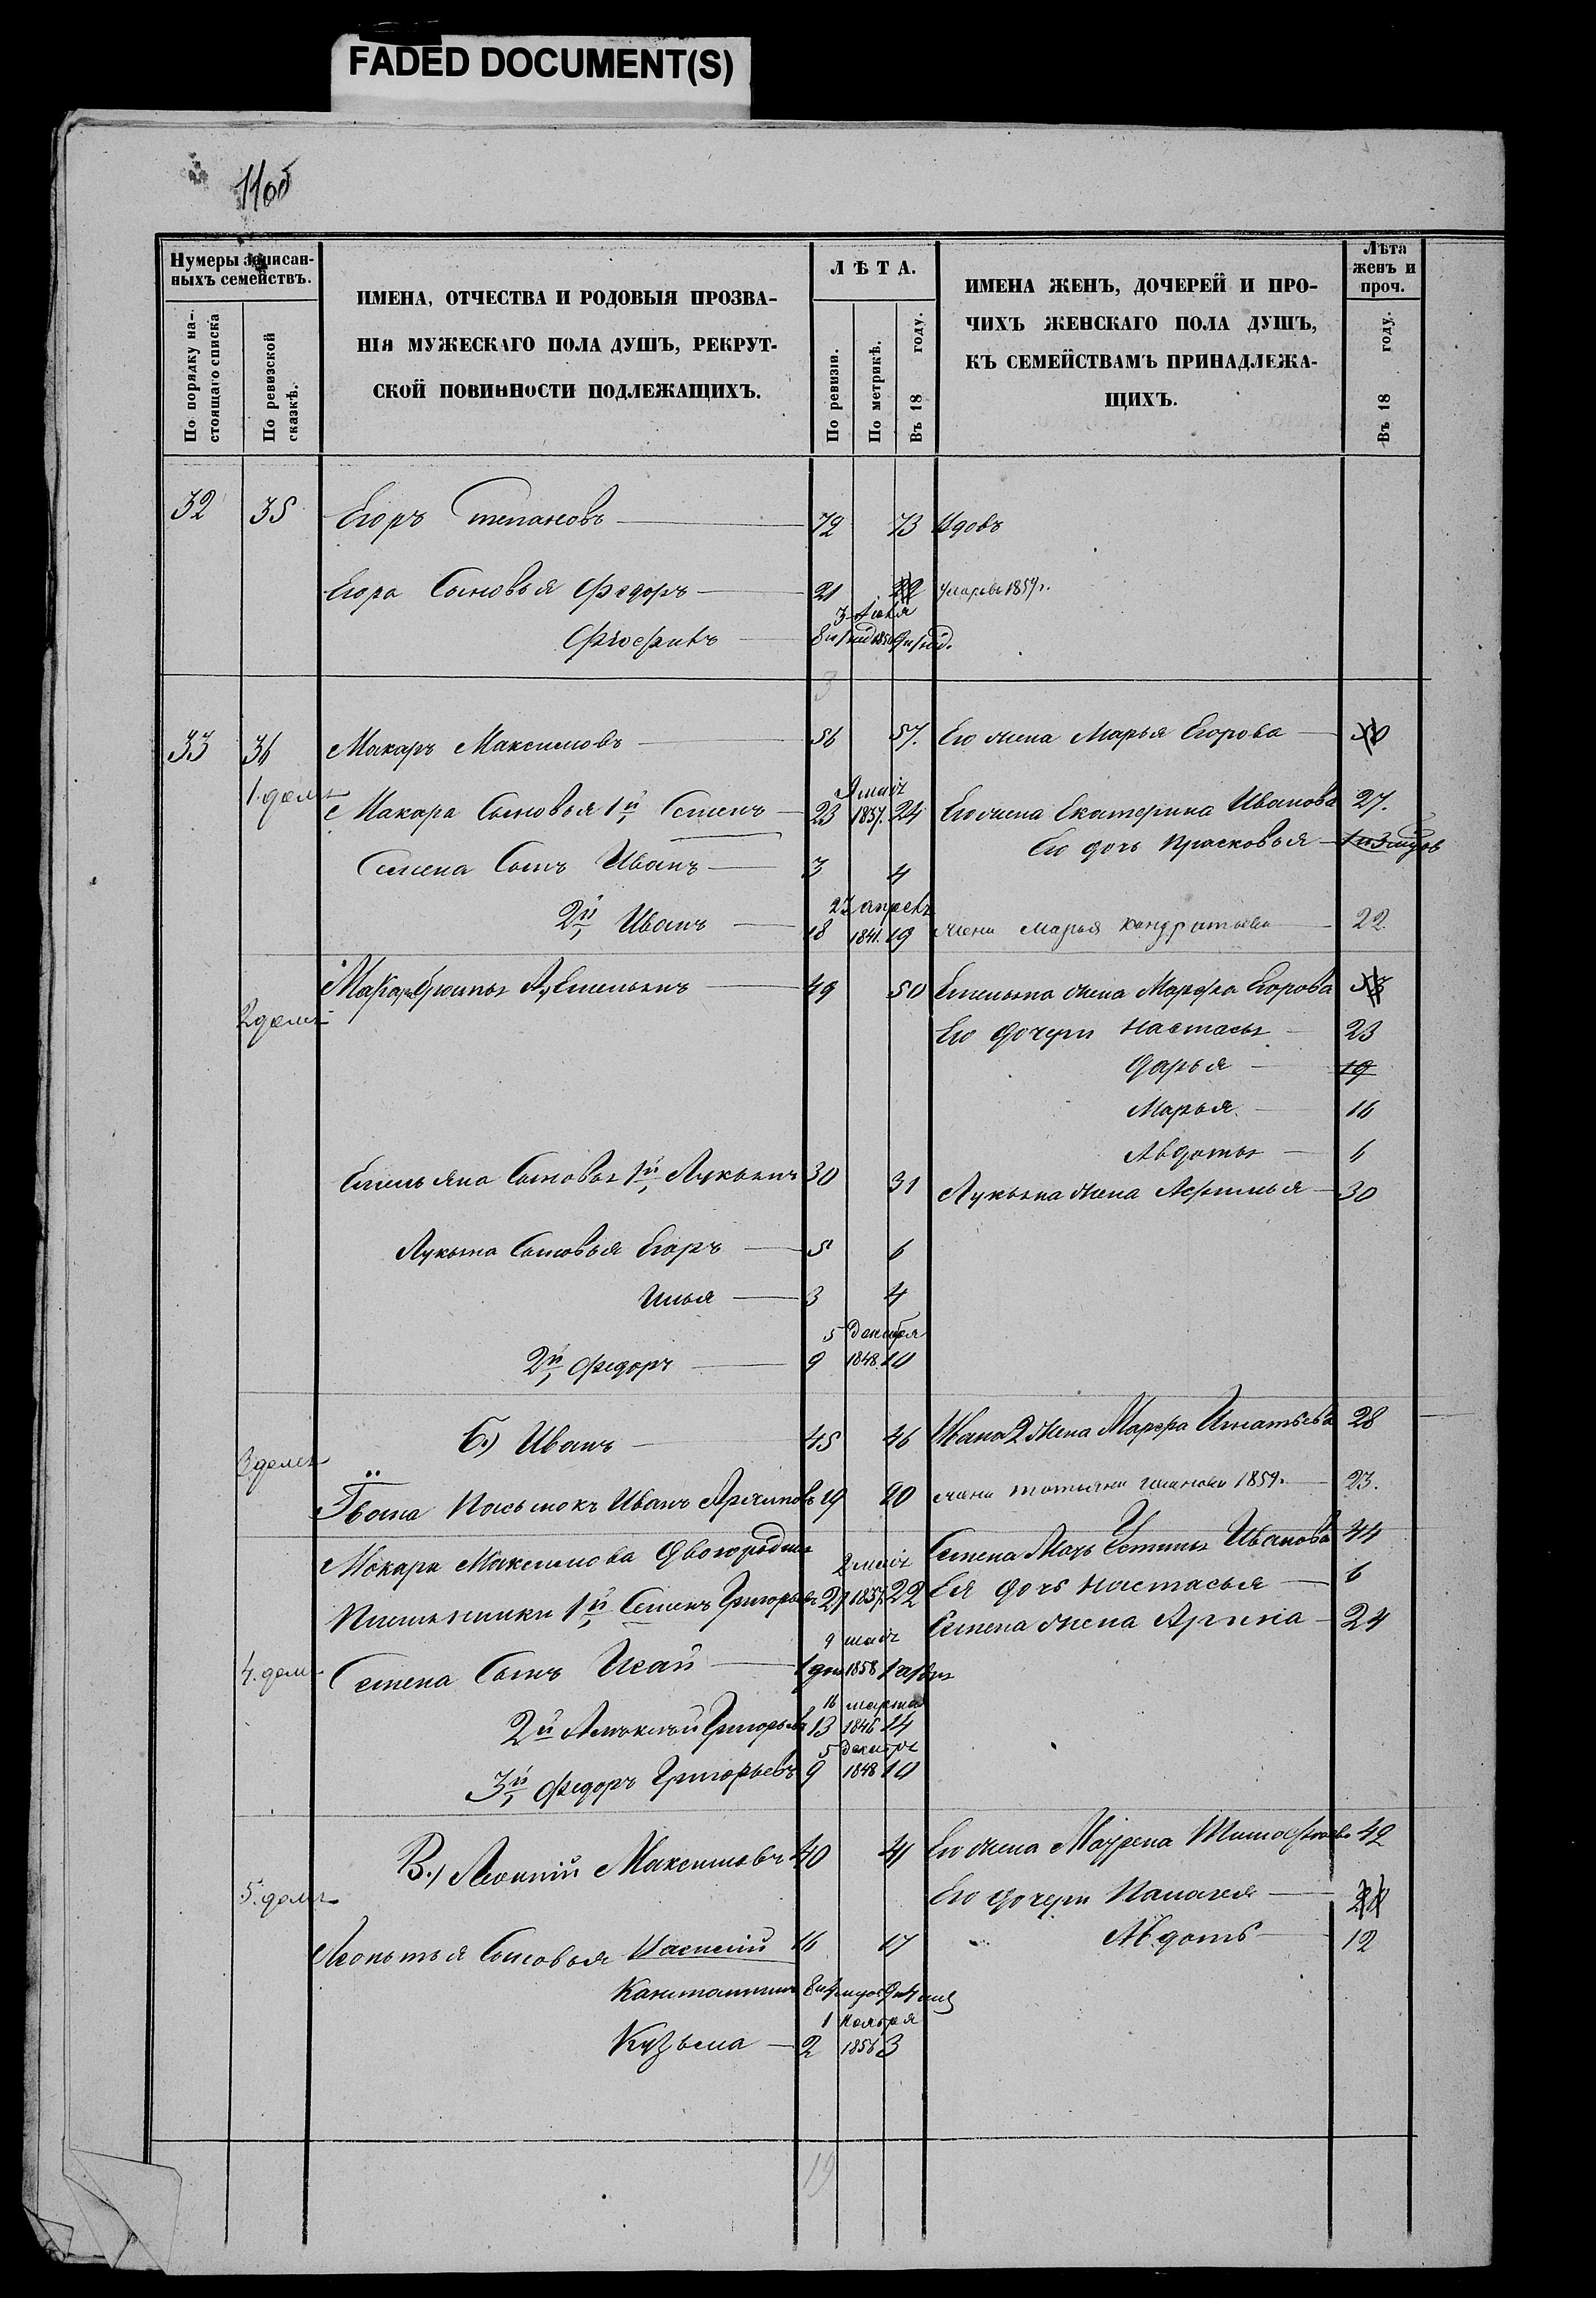 FADED DOCUMENT(S)
11об
Нумеры записан-
ныхъ семействъ.
По порядку на-
стоящаго списка
По ревизской
сказкѣ.
ИМЕНА, ОТЧЕСТВА И РОДОВЫЯ ПРОЗВА-
НІЯ МУЖЕСКАГО ПОЛА ДУШЪ, РЕКРУТ-
СКОЙ ПОВИННОСТИ ПОДЛЕЖАЩИХЪ.
ЛѢТА.
По ревизіи.
По метрикѣ.
Въ 18 году.
ИМЕНА ЖЕНЪ, ДОЧЕРЕЙ И ПРО-
ЧИХЪ ЖЕНСКАГО ПОЛА ДУШЪ,
КЪ СЕМЕЙСТВАМЪ ПРИНАДЛЕЖА-
ЩИХЪ.
Лѣта
женъ и
проч.
Въ 18 году.
32 35 Егоръ Степановъ 72 73 Вдовъ
Егора Сыновья Федоръ 21 22 умеръ 1859г.
3
33 36 Макаръ Максимовъ 56 57. Его жена Марья Егорова 50
1. домъ
9 маія
Макара Сыновья 1й Семенъ 23 1837. 24 Его жена Екатерина Иванова 27.
Его дочь Прасковья
Семена Сынъ Иванъ 3 4
23 апреля
2й Иванъ 18 1841. 19 жена Марья Кондратьева 22
2 домъ
Макара братья А, Емельянъ 49 50 Емельяна жена Марфа Егорова 53
Его дочери Настасья 23
Дарья 19
Марья 16
Авдотья 6
Емельяна Сыновья 1й Лукьянъ 30 31 Лукьяна жена Афимья 30
Лукьяна Сыновья Егоръ 5 6
Илья 3 4
5 декабря
2й Федоръ 9 1848. 10
3 домъ
Б.) Иванъ 45 46 Ивана 2 жена Марфа Игнатьева 28
Ивана Пасынокъ Иванъ 19 20 жена Татьяна 1859. 23.
Макара Максимова Двоюродные
Семена Мать Устинья Иванова 44
2 маія
Племянники 1й Семенъ Григорьевъ 21 1837. 22 Ея дочь Настасья 6
Семена жена Арина 24
4. домъ
9 маія
Семена Сынъ Исай 1858
16 марта
2й Алексѣй Григорьевъ 13 1846 14
5 декабря
3й Федоръ Григорьевъ 9 1848 10
5. домъ
В.) Леонтій Максимовъ 40 41 Его жена Маврена Тимофеева 42
Его дочери Палагея
Авдотья 12
Леонтья Сыновья Василій 16 17
Канстантинъ
1 ноября
Кузьма 2 1856 3
19